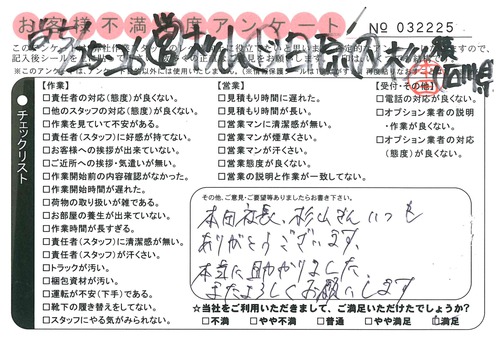 お客様不満足度アンケート
No 032225
記入後シールを
(個人情報保護シールは1
【作業】
□責任者の対応(態度)が良くない。
□他のスタッフの対応(態度)が良くない。
□作業を見ていて不安がある。
□責任者(スタッフ)に好感が持てない。
□お客様への挨拶が出来ていない。
□ご近所への挨拶・気遣いが無い。
□作業開始前の内容確認がなかった。
□作業開始時間が遅れた。
□荷物の取り扱いが雑である。
□お部屋の養生が出来ていない。
□作業時間が長すぎる。
□責任者(スタッフ)に清潔感が無い。
□責任者(スタッフ)が汗くさい。
□トラックが汚い。
□梱包資材が汚い。
□運転が不安(下手)である。
□靴下の履き替えをしてない。
□スタッフにやる気がみられない。
チェックリスト
【営業】
□見積もり時間に遅れた。
□見積もり時間が長い。
□営業マンに清潔感が無い。
□営業マンが煙草くさい。
□営業マンが汗くさい。
□営業態度が良くない。
□営業の説明と作業が一致してない。
【受付・その他】
□電話の対応が良くない。
□オプション業者の説明
・作業が良くない。
□オプション業者の対応
(態度)が良くない。
その他、ご意見・ご要望等ありましたらお書き下さい。
本田社長、杉山さんいつも
ありがとうございます。
本当に助かりました。
またよろしくお願いします
☆当社をご利用いただきまして、ご満足いただけたでしょうか?
□不満 □やや不満 □普通 □やや満足 □満足